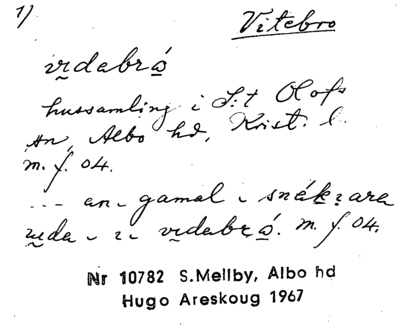 1) Vitebro
vịdabrọ́
hussamling i S:t Olofs
sn, Albo hd, Krist. l.
m. f. 04.
... an ı gamal ı snák̠ara
ı ı vịdabrọ́. m. f. 04.
Nr 10782 S.Mellby, Albo hd
Hugo Areskoug 1967